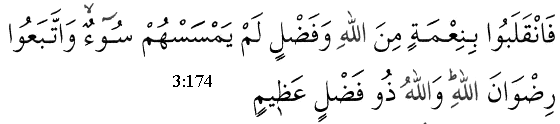 فَانْقَلَبُوا بِنِعْمَةٍ مِنَ اللهِ وَفَضْلٍ لَمْ يَمْسَسْهُمْ سُوٓءٌ ۙ وَاتَّبَعُوا
رِضْوَانَ اللهِ ؕ وَاللهُ ذُو فَضْلٍ عَظِيمٍ 3:174